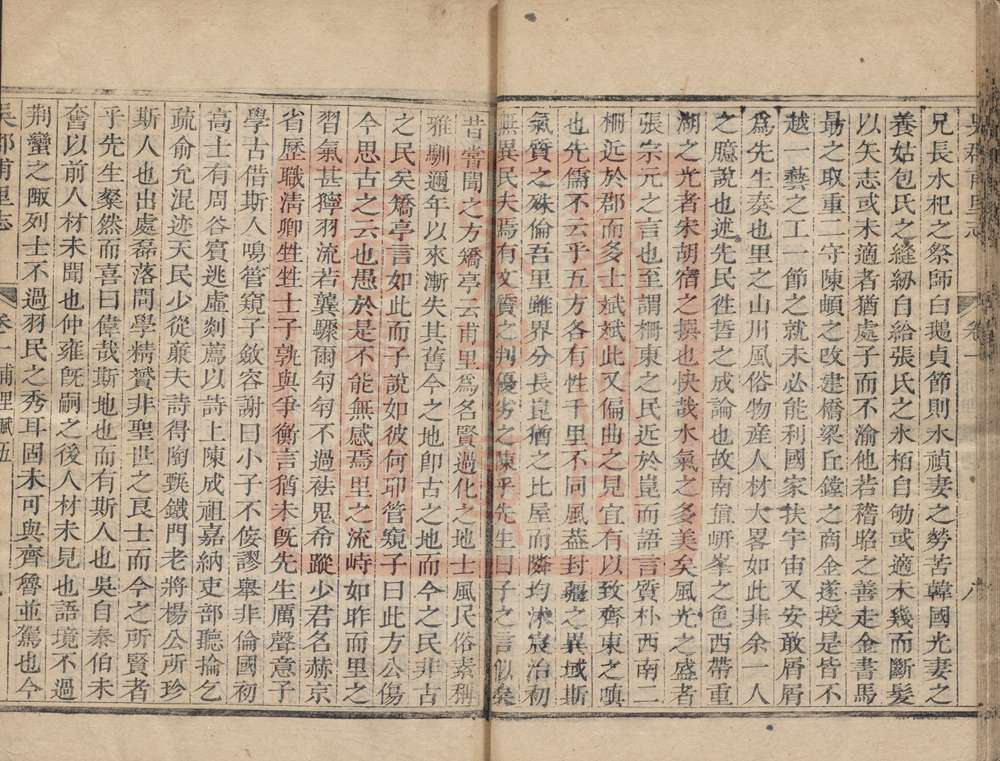 吳郡甫里志 卷一 八
兄長水杞之祭師白魒貞節則水禎妻之勞苦韓國光妻之
養姑包氏之縫紉自給張氏之氷栢自勵或適未幾而斷髮
以矢志或未適者猶處子而不渝他若稽昭之善走金書馬
勗之取重二守陳頔之改建橋梁丘鏜之商金遂授是皆不
越一藝之工一節之就未必能利國家扶宇宙又安敢屑屑
爲先生奏也里之山川風俗物産人材大畧如此非余一人
之臆說也述先民徃哲之成論也故南值岍峯之色西帶重
湖之光者宋胡宿之撰也快哉水氣之多美矣風光之盛者
張宗元之言也至謂柵東之民近於崑而語言質朴西南二
柵近於郡而多士斌斌此又偏曲之見宜有以致齊東之嗔
也先儒不云乎五方各有性千里不同風葢封疆之異域斯
氣質之殊倫吾里雖界分長崑猶之比屋而隣均沐宸治初
無異民夫焉有文質之判優劣之陳乎先生曰子之言似矣
昔嘗聞之方矯亭云甫里爲名賢過化之地士風民俗素稱
雅馴邇年以來漸失其舊今之地卽古之地而今之民非古
之民矣矯亭言如此而子說如彼何耶管窺子曰此方公傷
今思古之云也愚於是不能無感焉里之流峙如昨而里之
習氣甚獰羽流若龔驟爾匈匈不過袪鬼希蹤少君名赫京
省歷職清卿甡甡士子孰與爭衡言猶未旣先生厲聲意子
學古借斯人鳴管窺子斂容謝曰小子不侫謬舉非倫國初
高士有周谷賓逃虛剡薦以詩上陳成祖嘉納吏部聽掄乞
疏俞允混迹天民少從亷夫詩得陶甄鐵門老將楊公所珍
斯人也出處磊落問學精贇非聖世之良士而今之所賢者
乎先生粲然而喜曰偉哉斯地也而有斯人也吳自泰伯未
奮以前人材未聞也仲雍旣嗣之後人材未見也語境不過
荆蠻之陬列士不過羽民之秀耳固未可與齊魯並駕也今
吳郡甫里志 卷一 甫里賦五